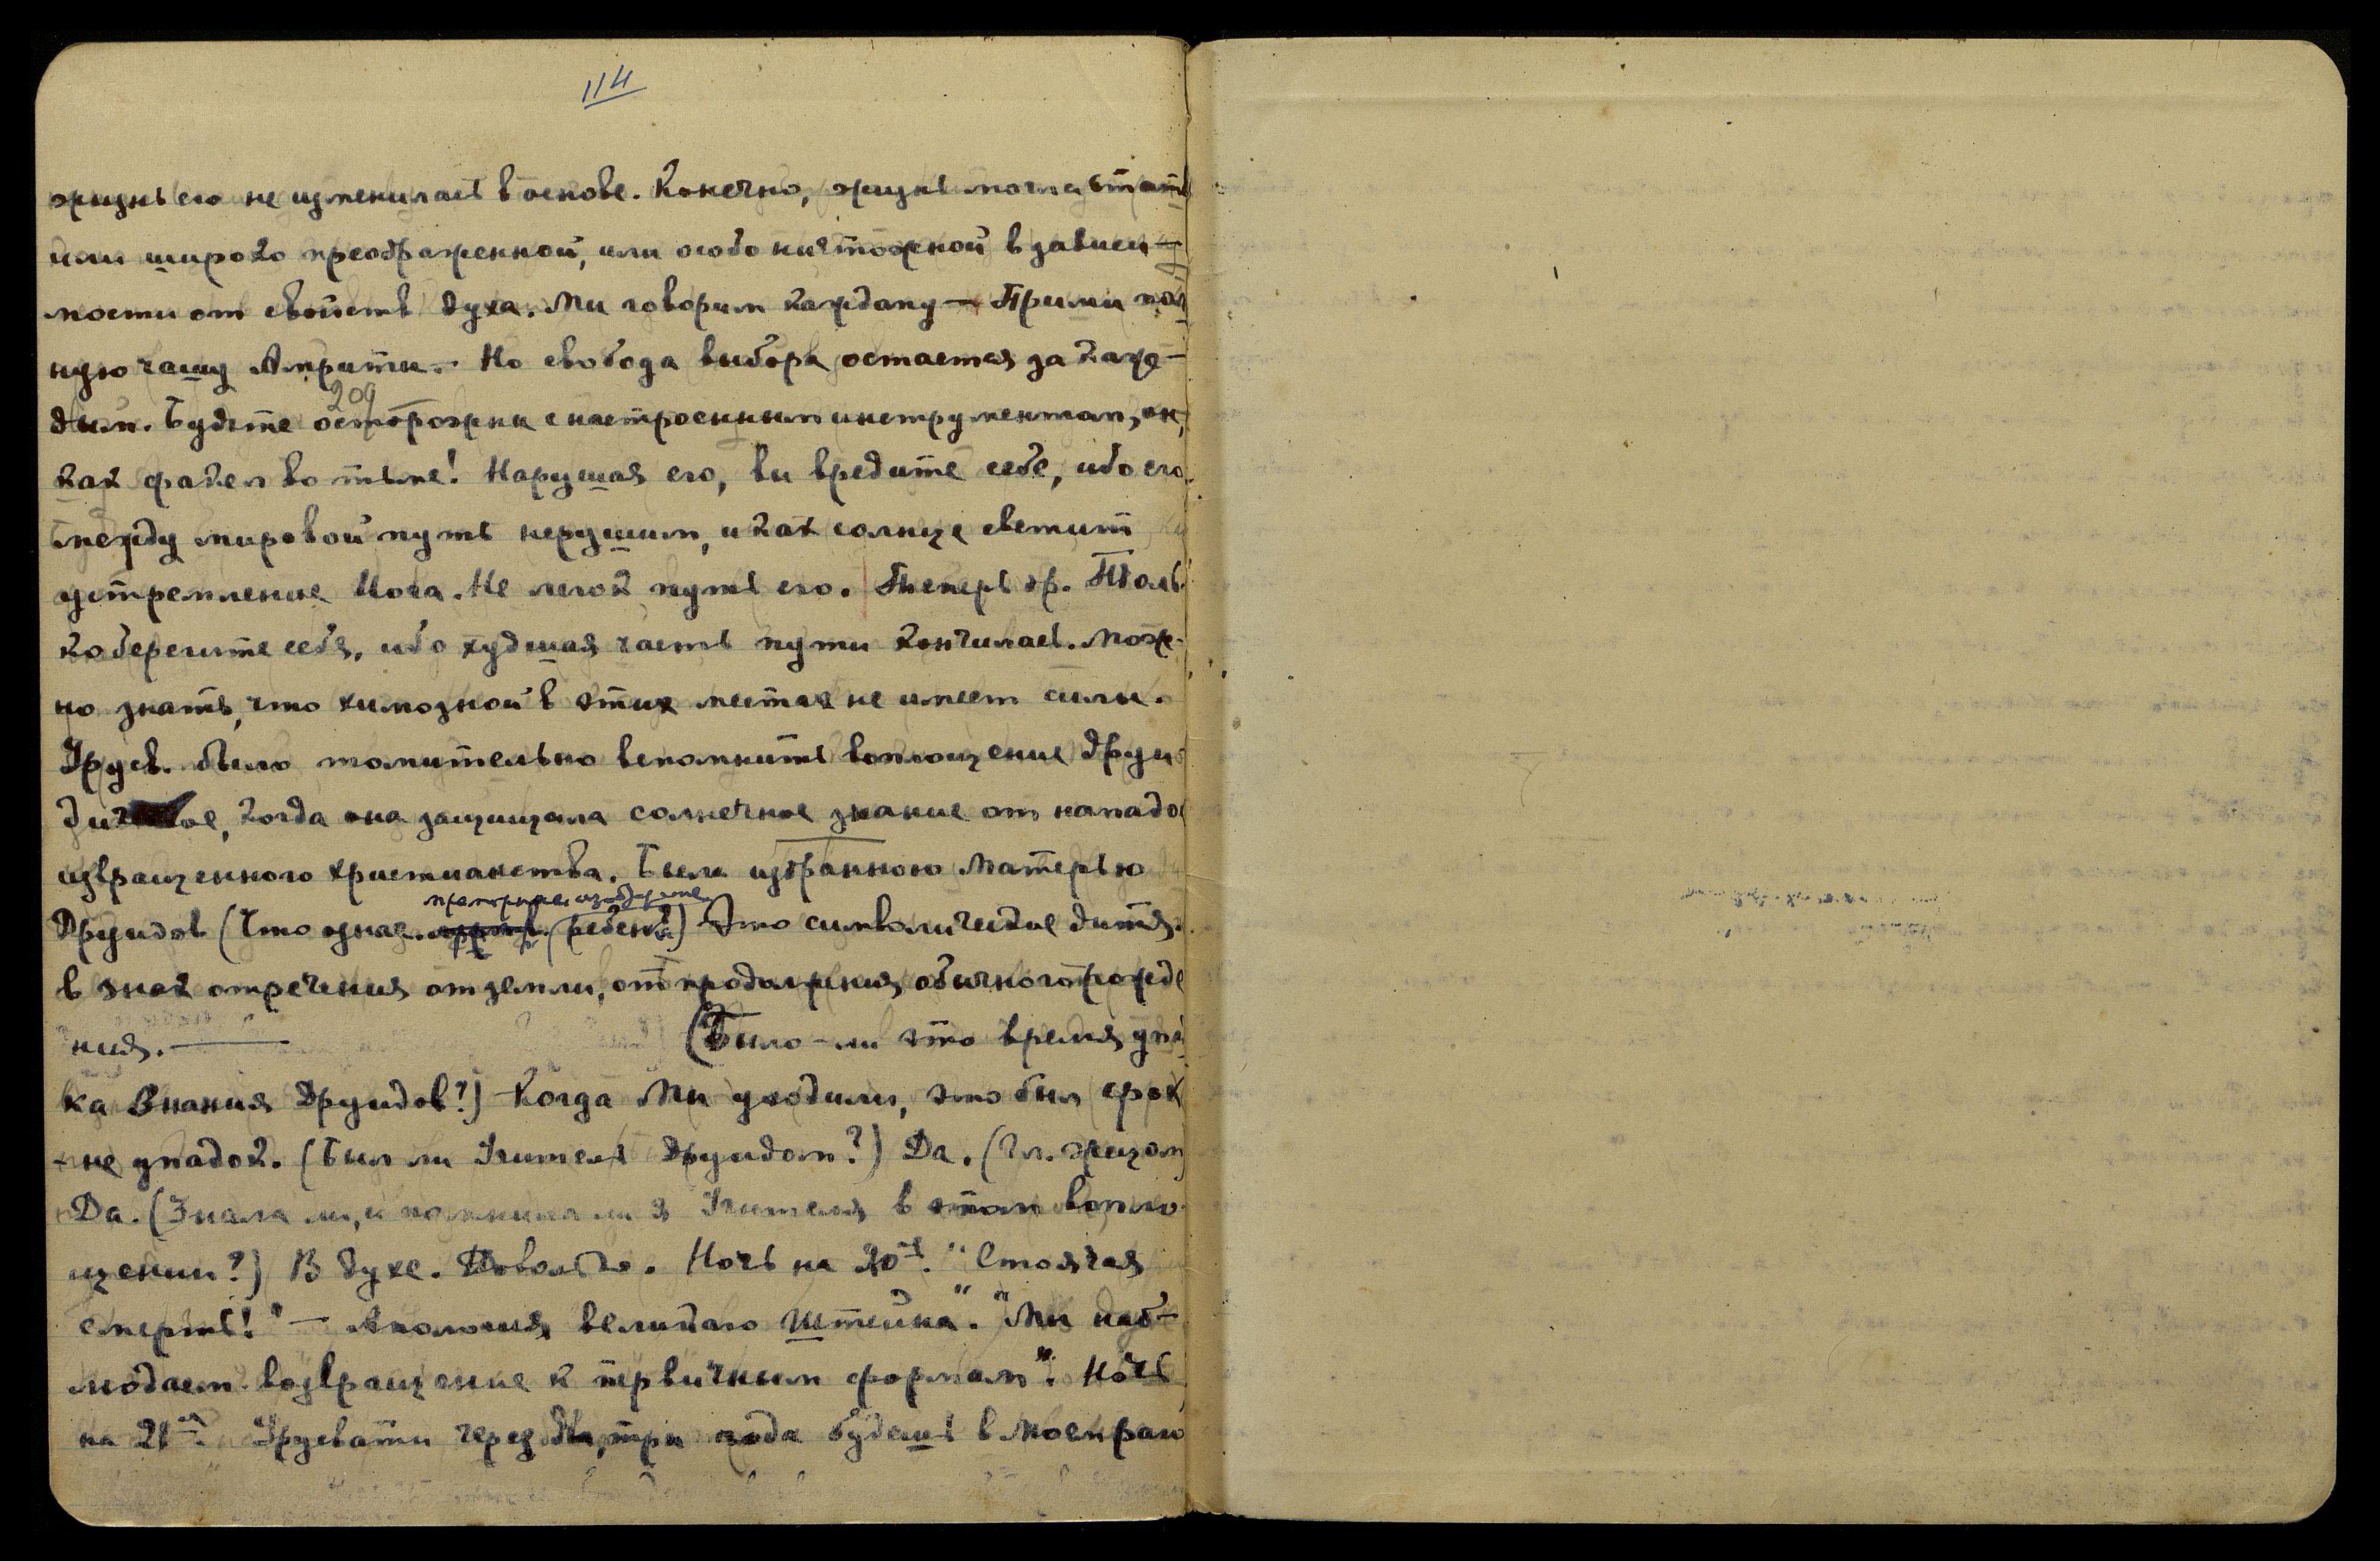 114
жизнь его не изменилась в основе. Конечно, жизнь могла стать
или широко преображенной, или особо ничтожной в зависи-
мости от свойств духа. Мы говорим каждому — Прими пол
ную чашу Амриты. Но свобода выбора остается за каж-
209
дым. Будьте осторожны с настроенным инструментом, он,
как факел во тьме! Нарушая его, вы вредите себе, ибо его
между мировой путь нерушим, и как солнце светит
устремление Йога. Не легок путь его. Теперь др. Толь
ко берегите себя, ибо худшая часть пути кончилась. Мож-
но знать, что в этих местах не имеет силы.
Урусв. было томительно вспомнить воплощение друи
дическое, когда она защищала солнечное знание от нападок
извращенного христианства. Была избранною Матерью
прогорные
Друидов (Что означ. ребенок?) Это символическое дитя.
в знак отречения от земли, от продолжения обычного рожде
ния. — (Было-ли это время упа
ка Знания Друидов?) Когда Мы уходили, это был срок
- не упадок. (Был ли Учитель Друидом?) Да. (Гл. жрецом
Да. (Знала ли, и помнила ли я Учителя в этом вопло-
щении?) В духе. Довольно. Ночь на 20-е. "Стоячая
смерть!" — Апология великаго Штейна". "Мы наб-
людаем возвращение к первичным формам". Ночь
на 21-е. Урусвати через два, три года будешь в Моем раю